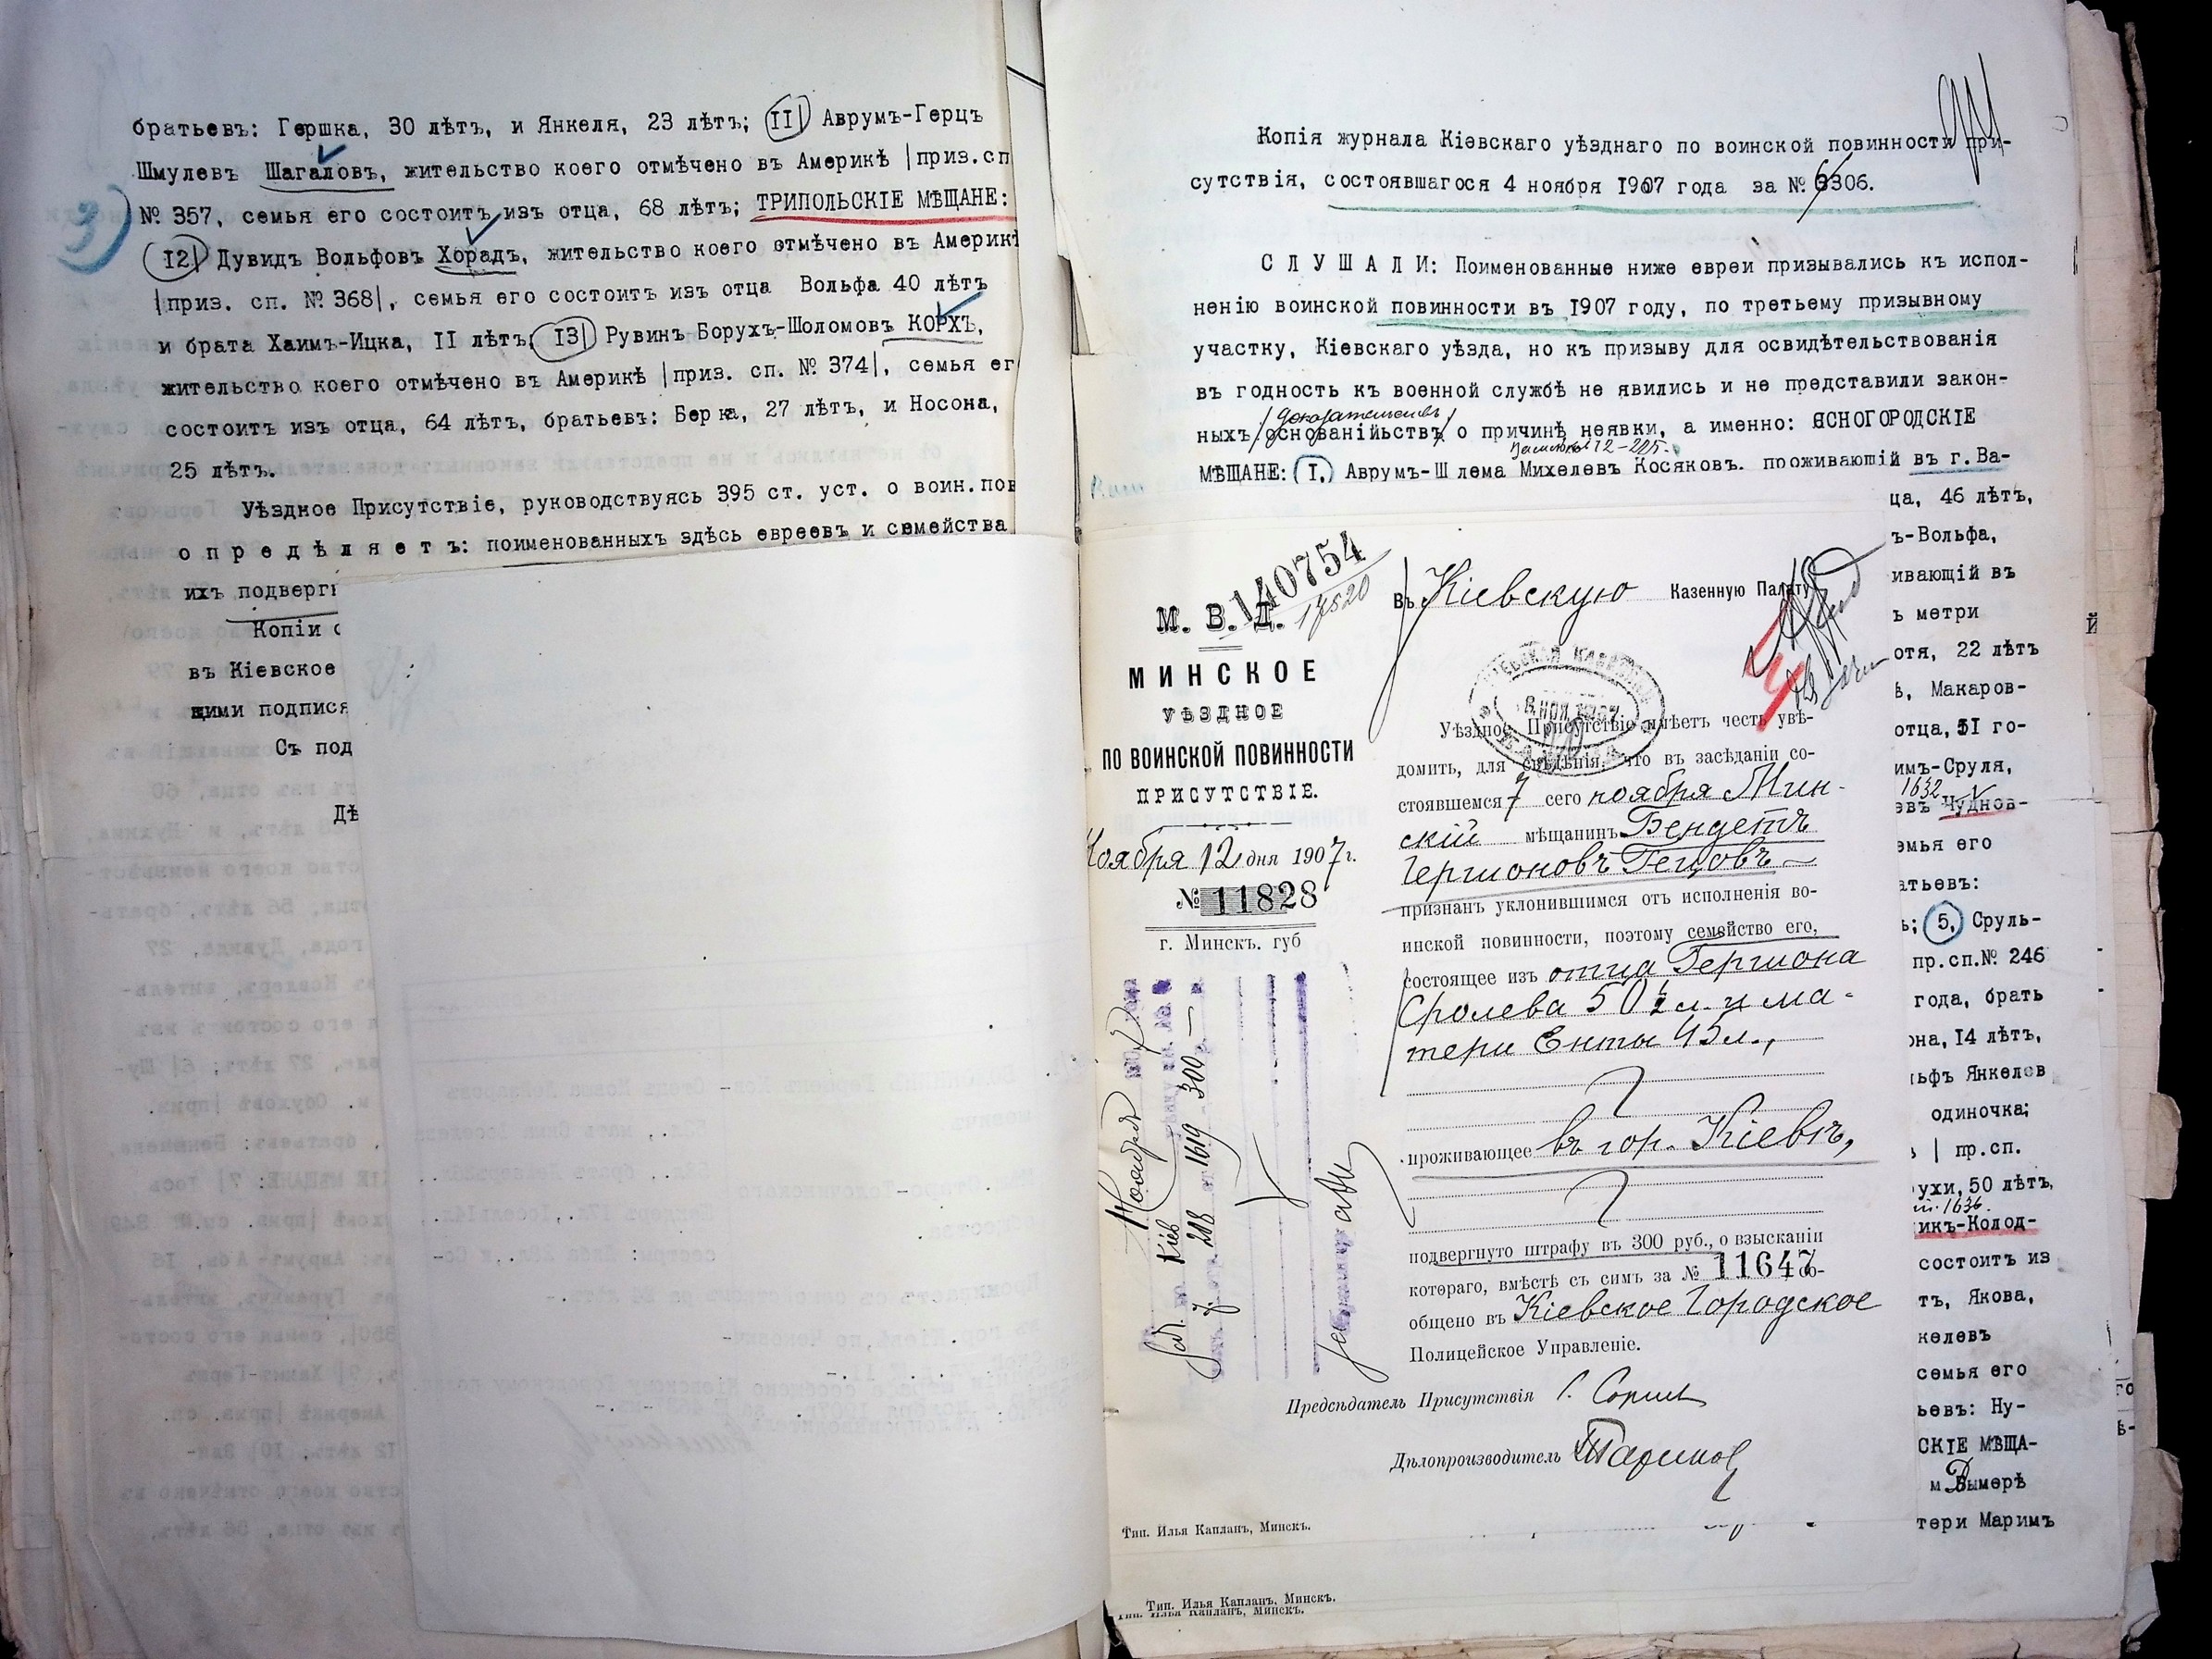 братьевъ: Гершка, 30 лѣтъ, и Янкеля, 23 лѣтъ; (II) Аврумъ-Герцъ
Шмулевъ Шагаловъ, жительство коего отмѣчено въ Америкѣ |приз.сп
№ 357, семья его состоитъ изъ отца, 68 лѣтъ; ТРИПОЛЬСКІЕ МѢЩАНЕ:
3)
12| Дувидъ Вольфовъ Хорадъ, жительство коего отмѣчено въ Америкѣ
|приз. сп. № 368|, семья его состоитъ изъ отца Вольфа 40 лѣтъ
и брата Хаимъ-Ицка, II лѣтъ; 13| Рувинъ Борухъ-Шоломовъ КОРХЪ,
жительство коего отмѣчено въ Америкѣ |приз. сп. № 374|, семья ег
состоитъ изъ отца, 64 лѣтъ, братьевъ: Берка, 27 лѣтъ, и Носона,
25 лѣтъ.
Уѣздное Присутствіе, руководствуясь 395 ст. уст. о воин.пов
о п р е д ѣ л я е т ъ: поименованныхъ здѣсь евреевъ и семейства
ихъ подверг
Копіи с
въ Кіевское
щими подпися
Съ под
Дѣ
Копія журнала Кіевскаго уѣзднаго по воинской повинности при-
сутствія, состоявшагося 4 ноября 1907 года за № 6306.
С Л У Ш А Л И: Поименованные ниже евреи призывались къ испол-
ненію воинской повинности въ 1907 году, по третьему призывному
участку, Кіевскаго уѣзда, но къ призыву для освидѣтельствованія
въ годность къ военной службѣ не явились и не представили закон-
доказательствъ
ныхъ основанійьствъ о причинѣ неявки, а именно: ЯСНОГОРОДСКІЕ
МѢЩАНЕ: (I.) Аврумъ-Шлема Михелевъ Косяковъ. проживающій въ г. Ва-
ца, 46 лѣтъ,
ъ-Вольфа,
ивающій въ
ъ метри
отя, 22 лѣтъ
ѣ, Макаров-
отца, 51 го-
имъ-Сруля,
1632
евъ Чуднов-
емья его
атьевъ:
ь; 5, Сруль-
пр.сп.№ 246
года, брать
она, 14 лѣтъ,
льфъ Янкелев
одиночка;
| пр.сп.
ухи, 50 лѣтъ,
1636
икъ-Колод-
состоитъ из
тъ, Якова,
келевъ
семья его
ьевъ: Ну-
СКІЕ МѢЩА-
м Дымерѣ
тери Маримъ
140754
17520
М. В. Д.
МИНСКОЕ
УѢЗДНОЕ
ПО ВОИНСКОЙ ПОВИННОСТИ
ПРИСУТСТВІЕ.
Ноября 12 дня 1907 г.
№ 11828
г. Минскъ. губ
Ноября
Кіев
7 208 ст 1619 300 р. —
Въ Кіевскую Казенную Палату
8 НОЯ 1907
Уѣздное Присутствіе имѣетъ честь увѣ-
домить, для свѣдѣнія, что въ засѣданіи со-
стоявшемся 7 сего ноября Мин-
скій мѣщанинъ Бендетъ
Гершоновъ Гецовъ —
признанъ уклонившимся отъ исполненія во-
инской повинности, поэтому семейство его,
состоящее изъ отца Гершона
Сролева 50½ л. и ма-
тери Енты 45 л.,
проживающее въ гор. Кіевѣ,
подвергнуто штрафу въ 300 руб., о взысканіи
котораго, вмѣстѣ съ симъ за № 11647 со-
общено въ Кіевское Городское
Полицейское Управленіе.
Предсѣдатель Присутствія
Дѣлопроизводитель
Тип. Илья Капланъ, Минскъ.
Тип. Илья Капланъ, Минскъ.
Тип. Илья Капланъ, Минскъ.